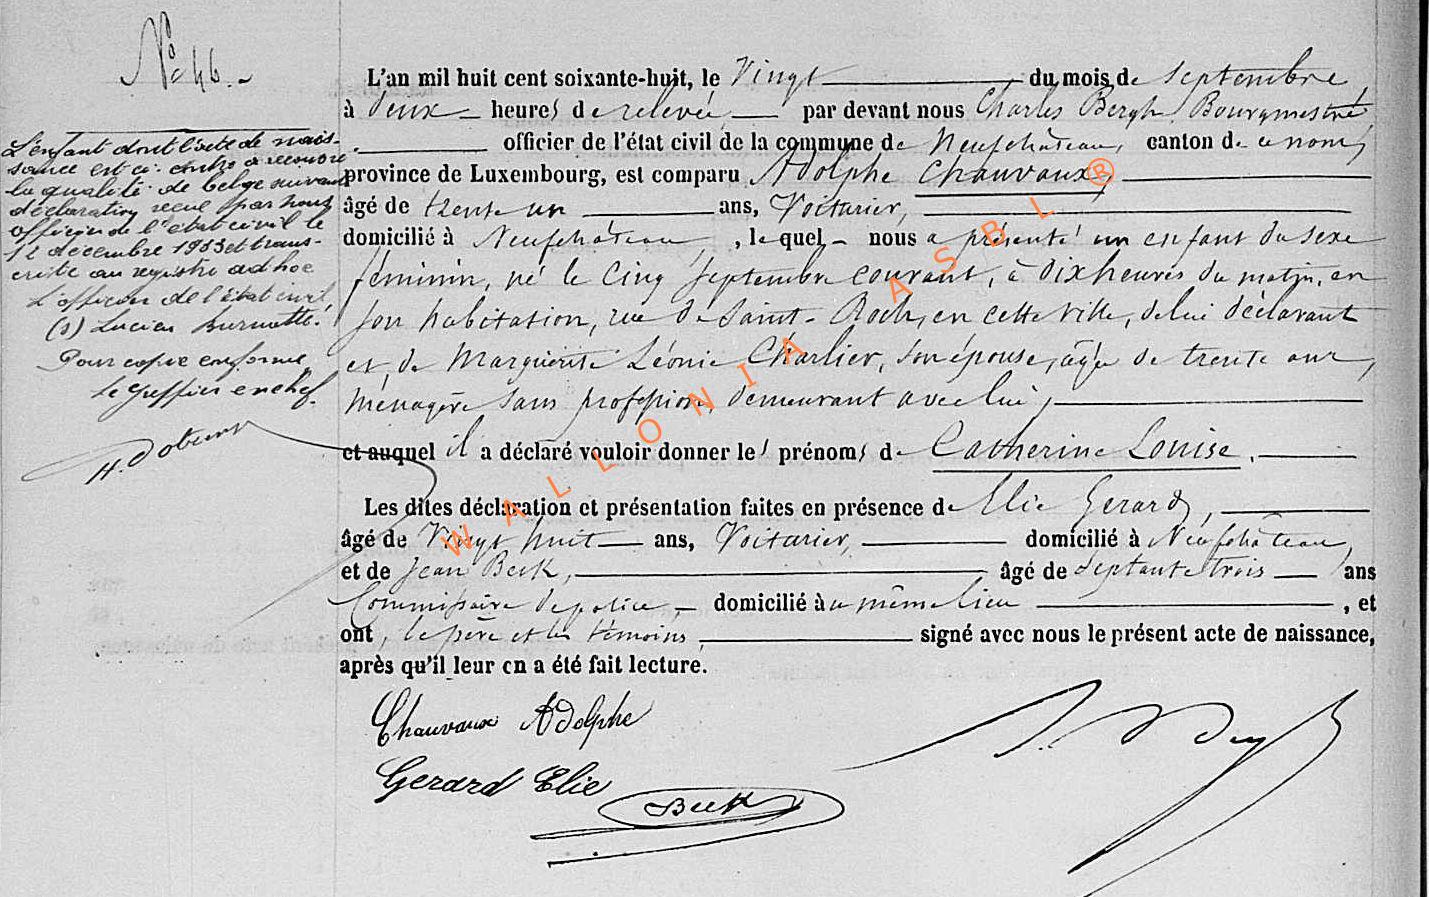 N° 46.
L'enfant dont l'acte de nais-
sance est ci-contre a recouvré
la qualité de belge suivant
déclaration reçue par nous
officier de l'état civil le
12 décembre 1933 et trans-
crite au registre ad hoc
L'officier de l'état civil,
(s) Lucien
Pour copie conforme,
Le greffier en chef.
L'an mil huit cent soixante-huit, le Vingt du mois de Septembre,
à deux heures de relevée, par devant nous Charles Bergh, Bourgmestre
officier de l'état civil de la commune de Neufchâteau, canton de ce nom,
province de Luxembourg, est comparu Adolphe Chauvaux,
âgé de trente un ans, Voiturier,
domicilié à Neufchâteau, lequel nous a présenté un enfant du sexe
féminin, né le Cinq Septembre courant, à dix heures du matin, en
son habitation, rue de Saint-Roch, en cette ville, de lui déclarant
et de Marguerite Léonie Charlier, son épouse, âgée de trente ans,
ménagère sans profession, demeurant avec lui,
et auquel il a déclaré vouloir donner les prénoms de Catherine Louise.
Les dites déclaration et présentation faites en présence de Elie Gerard,
âgé de Vingt huit ans, Voiturier, domicilié à Neufchâteau,
et de Jean Beck, âgé de Septante trois ans
Commissaire de police, domicilié à u même lieu, et
ont, le père et les témoins, signé avec nous le présent acte de naissance,
après qu'il leur en a été fait lecture.
Chauvaux Adolphe
Gerard Elie
Beck
WALLONIA ASBL ®